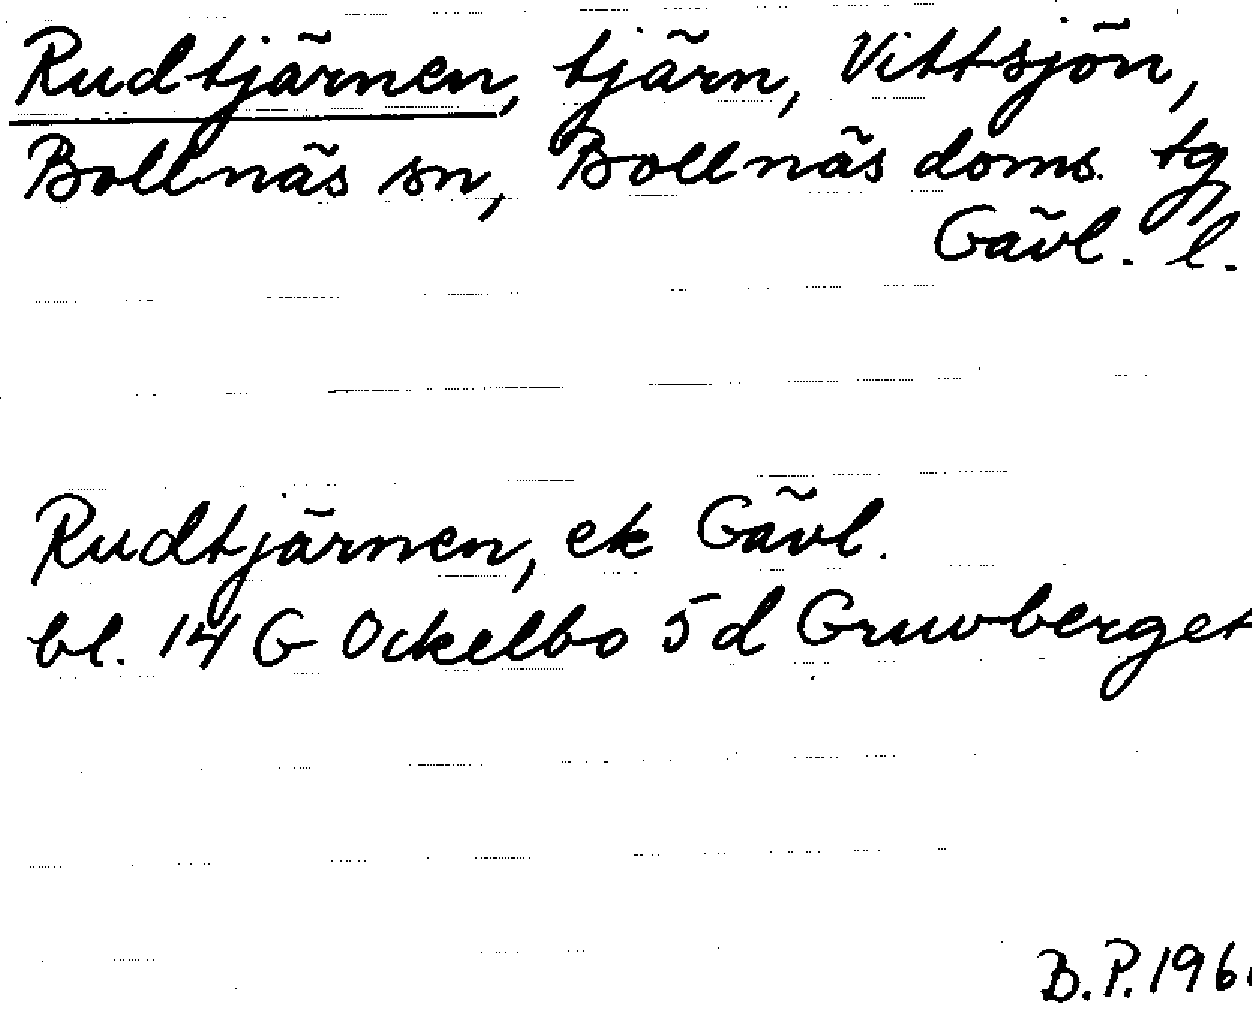 Rudtjärnen, tjärn, Vittsjön,
Bollnäs sn, Bollnäs doms. tg
Gävl. l.
Rudtjärnen, ek Gävl.
bl. 14 G Ockelbo 5 d Gruvberget
B.P. 196